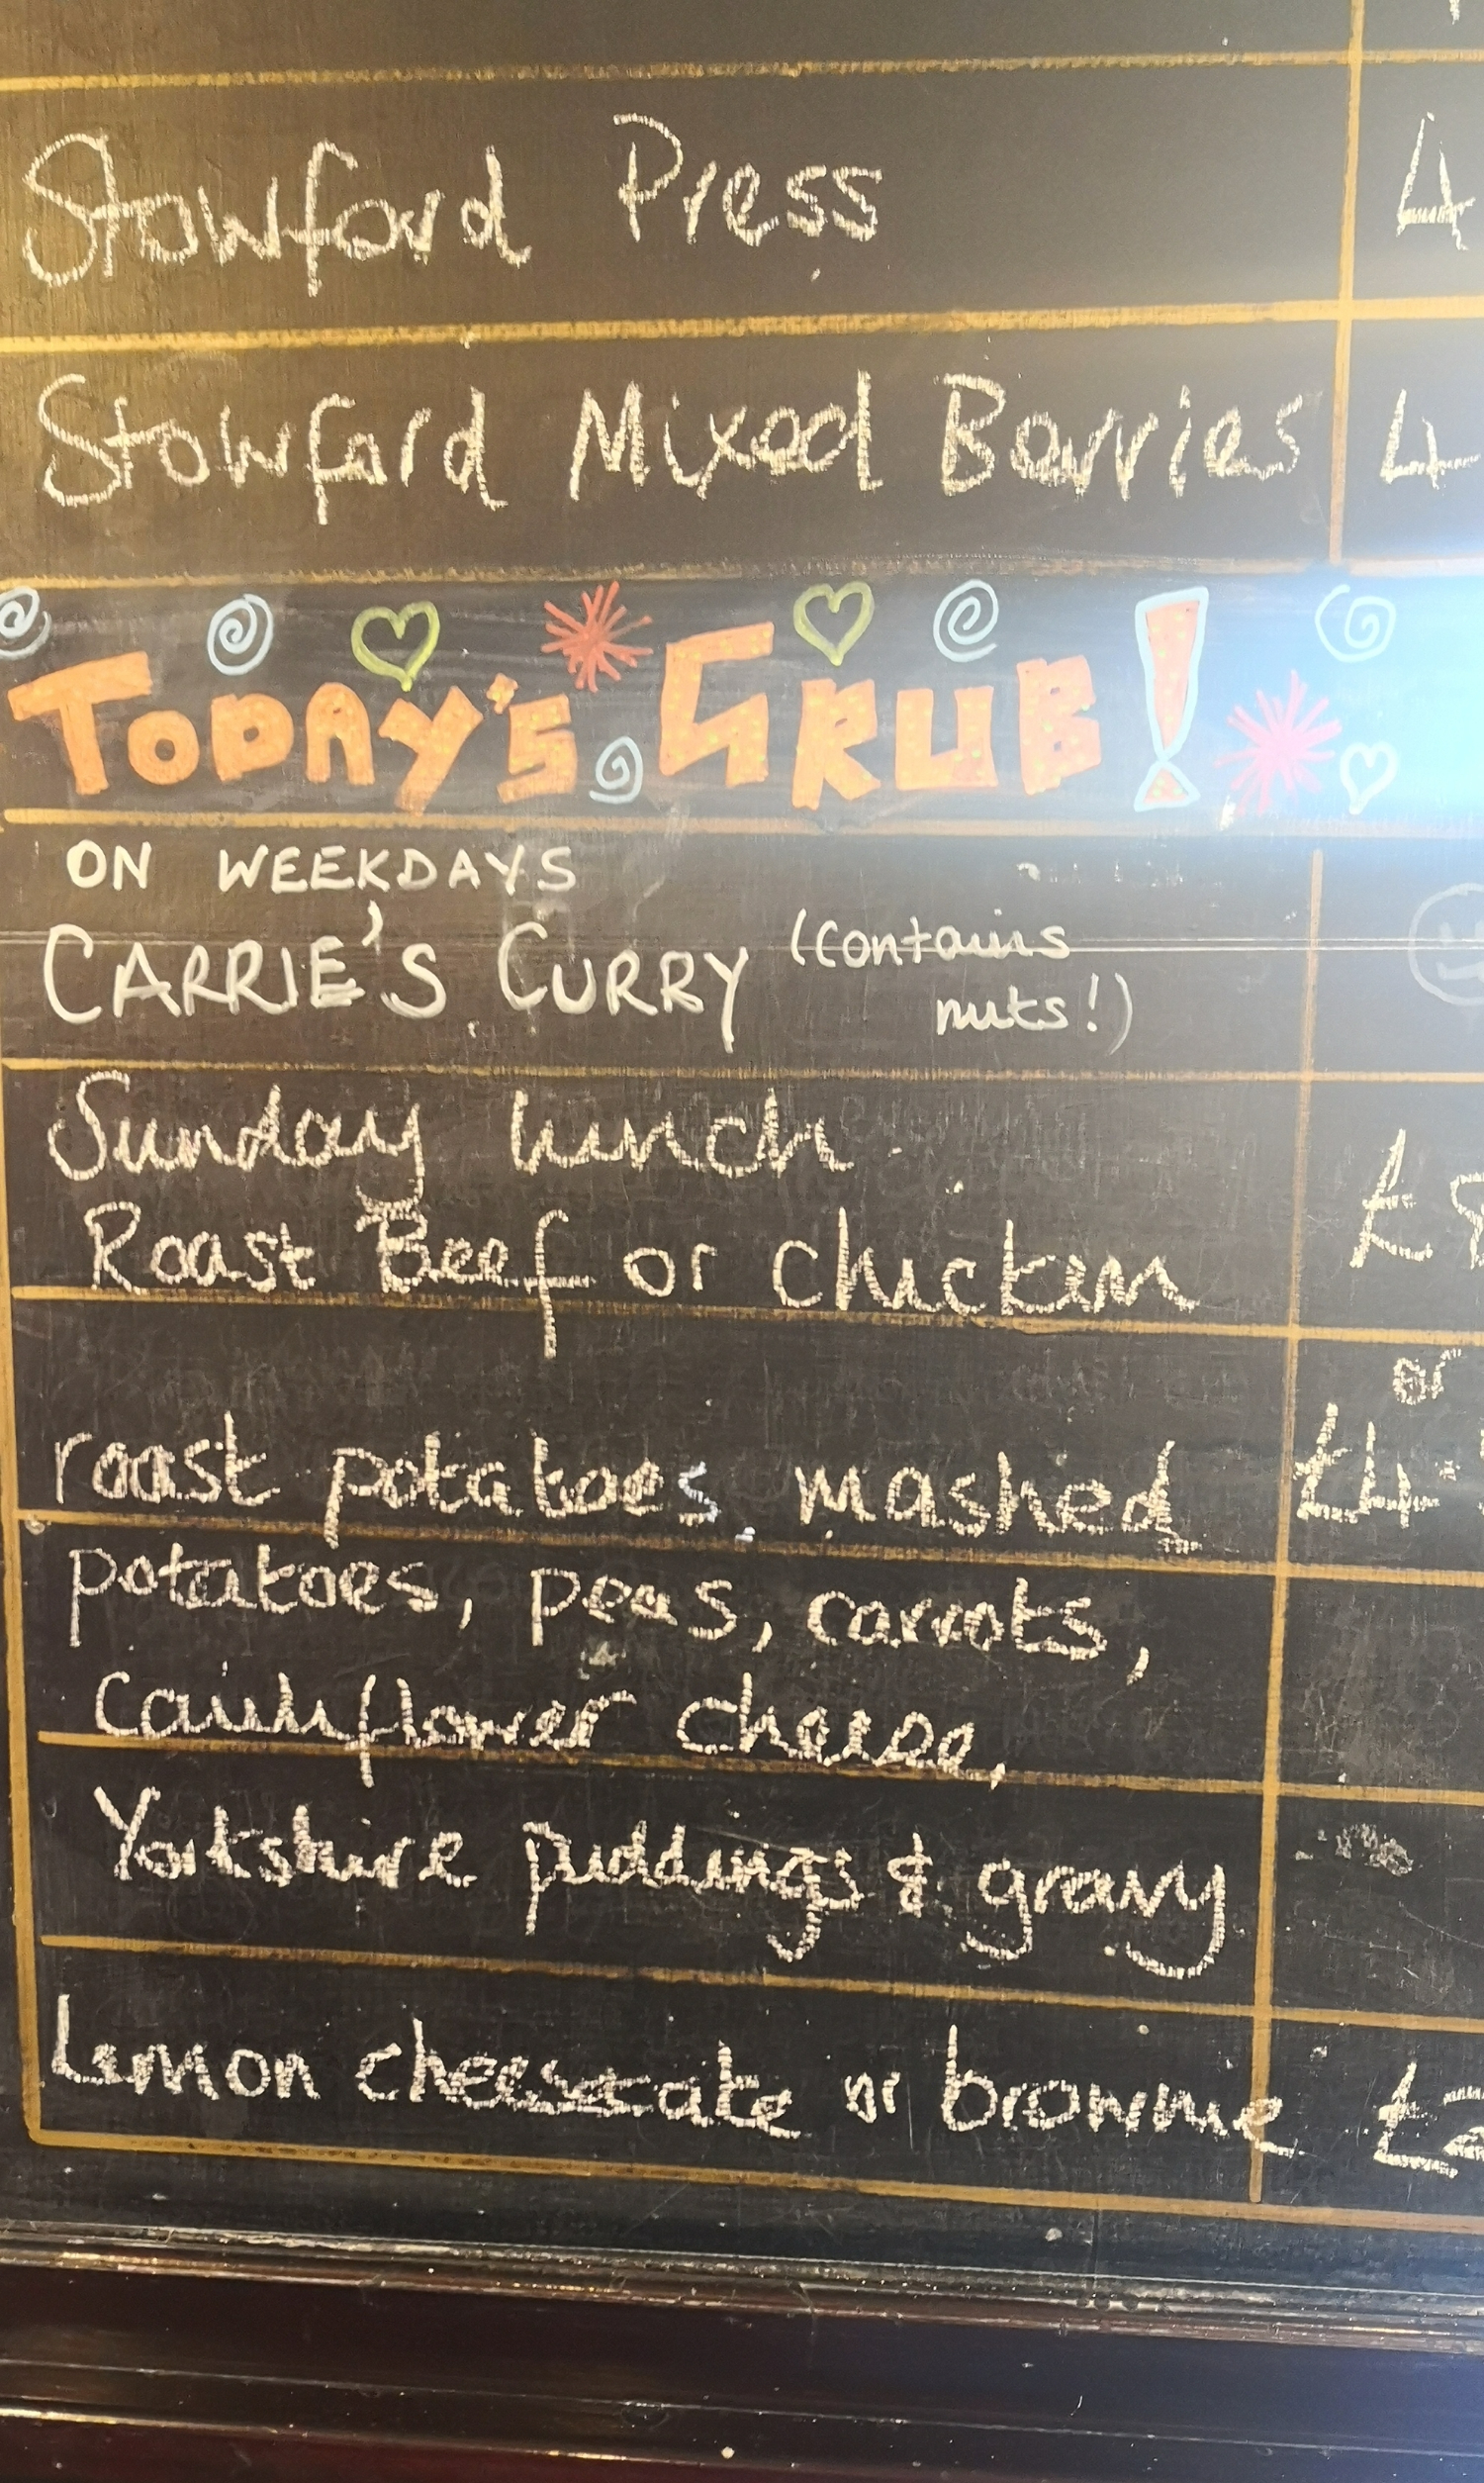 Stowford Press 4
Stowford Mixed Berries 4
TODAY'S GRUB!
ON WEEKDAYS
CARRIE'S CURRY (contains
nuts!)
Sunday lunch
Roast Beef or chicken £
or
roast potatoes, mashed £4
potatoes, peas, carrots,
cauliflower cheese,
Yorkshire puddings & gravy
Lemon cheesecake or brownie £2